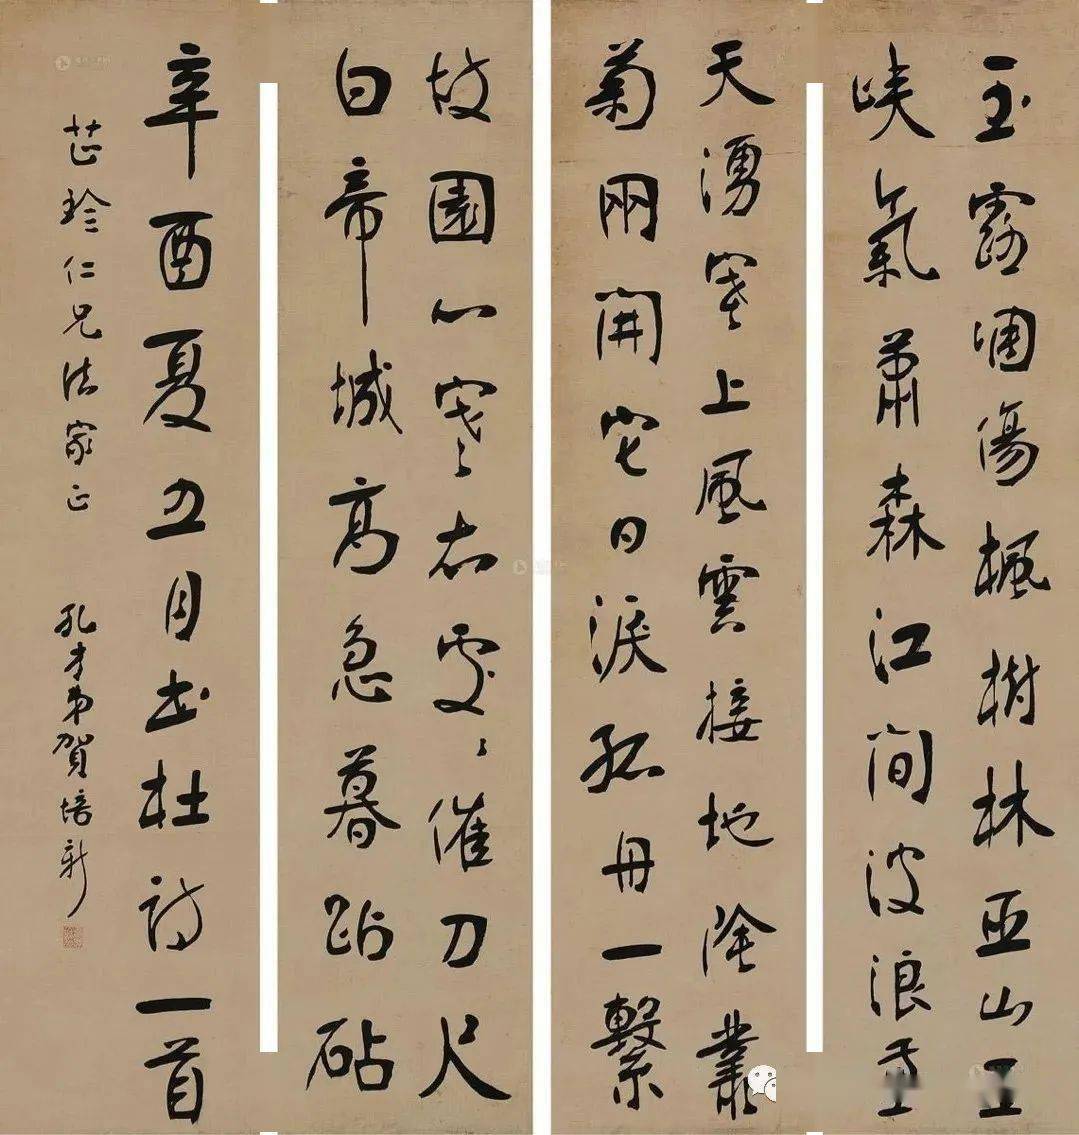 玉露凋傷楓樹林巫山巫
峽氣蕭森江間波浪兼
天湧塞上風雲接地陰叢
菊兩開它日淚孤舟一繫
故園心寒衣處〻催刀尺
白帝城高急暮砧
辛酉夏五月書杜詩一首
芷珍仁兄法家正 孔才弟賀培新